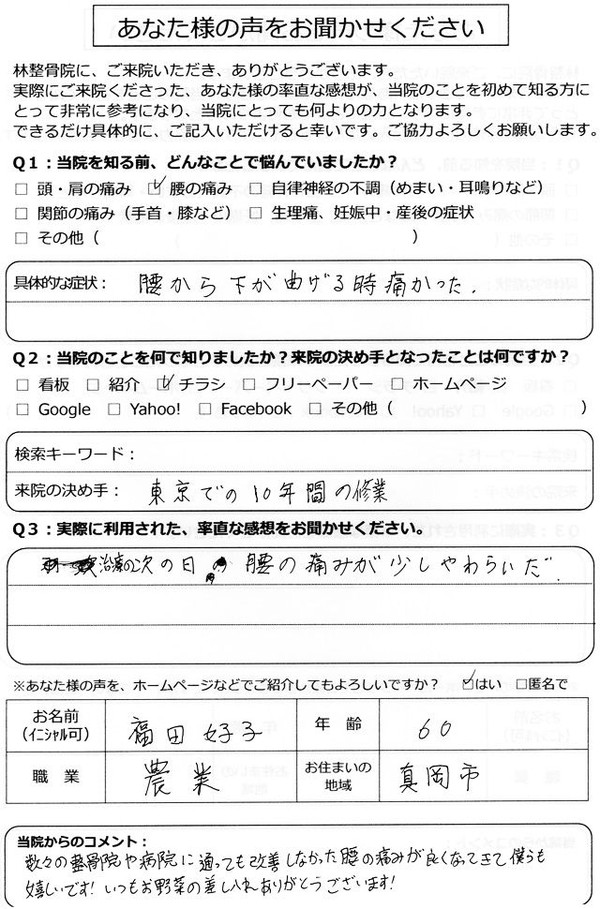 あなた様の声をお聞かせください
林整骨院に、ご来院いただき、ありがとうございます。
実際にご来院くださった、あなた様の率直な感想が、当院のことを初めて知る方に
とって非常に参考になり、当院にとっても何よりの力となります。
できるだけ具体的に、ご記入いただけると幸いです。ご協力よろしくお願いします。
Q1：当院を知る前、どんなことで悩んでいましたか？
□ 頭・肩の痛み ☑ 腰の痛み □ 自律神経の不調（めまい・耳鳴りなど）
□ 関節の痛み（手首・膝など） □ 生理痛、妊娠中・産後の症状
□ その他（ ）
具体的な症状： 腰から下が曲げる時痛かった.
Q2：当院のことを何で知りましたか？来院の決め手となったことは何ですか？
□ 看板 □ 紹介 ☑ チラシ □ フリーペーパー □ ホームページ
□ Google □ Yahoo! □ Facebook □ その他（ ）
検索キーワード：
来院の決め手： 東京での10年間の修業
Q3：実際に利用された、率直な感想をお聞かせください。
治療の次の日 腰の痛みが少しやわらいだ.
※あなた様の声を、ホームページなどでご紹介してもよろしいですか？ ☑はい □匿名で
お名前
（ｲﾆｼｬﾙ可） 福田好子 年 齢 60
職 業 農業 お住まいの
地域 真岡市
当院からのコメント：
数々の整骨院や病院に通っても改善しなかった腰の痛みが良くなってきて僕らも
嬉しいです！いつもお野菜の差し入れありがとうございます！